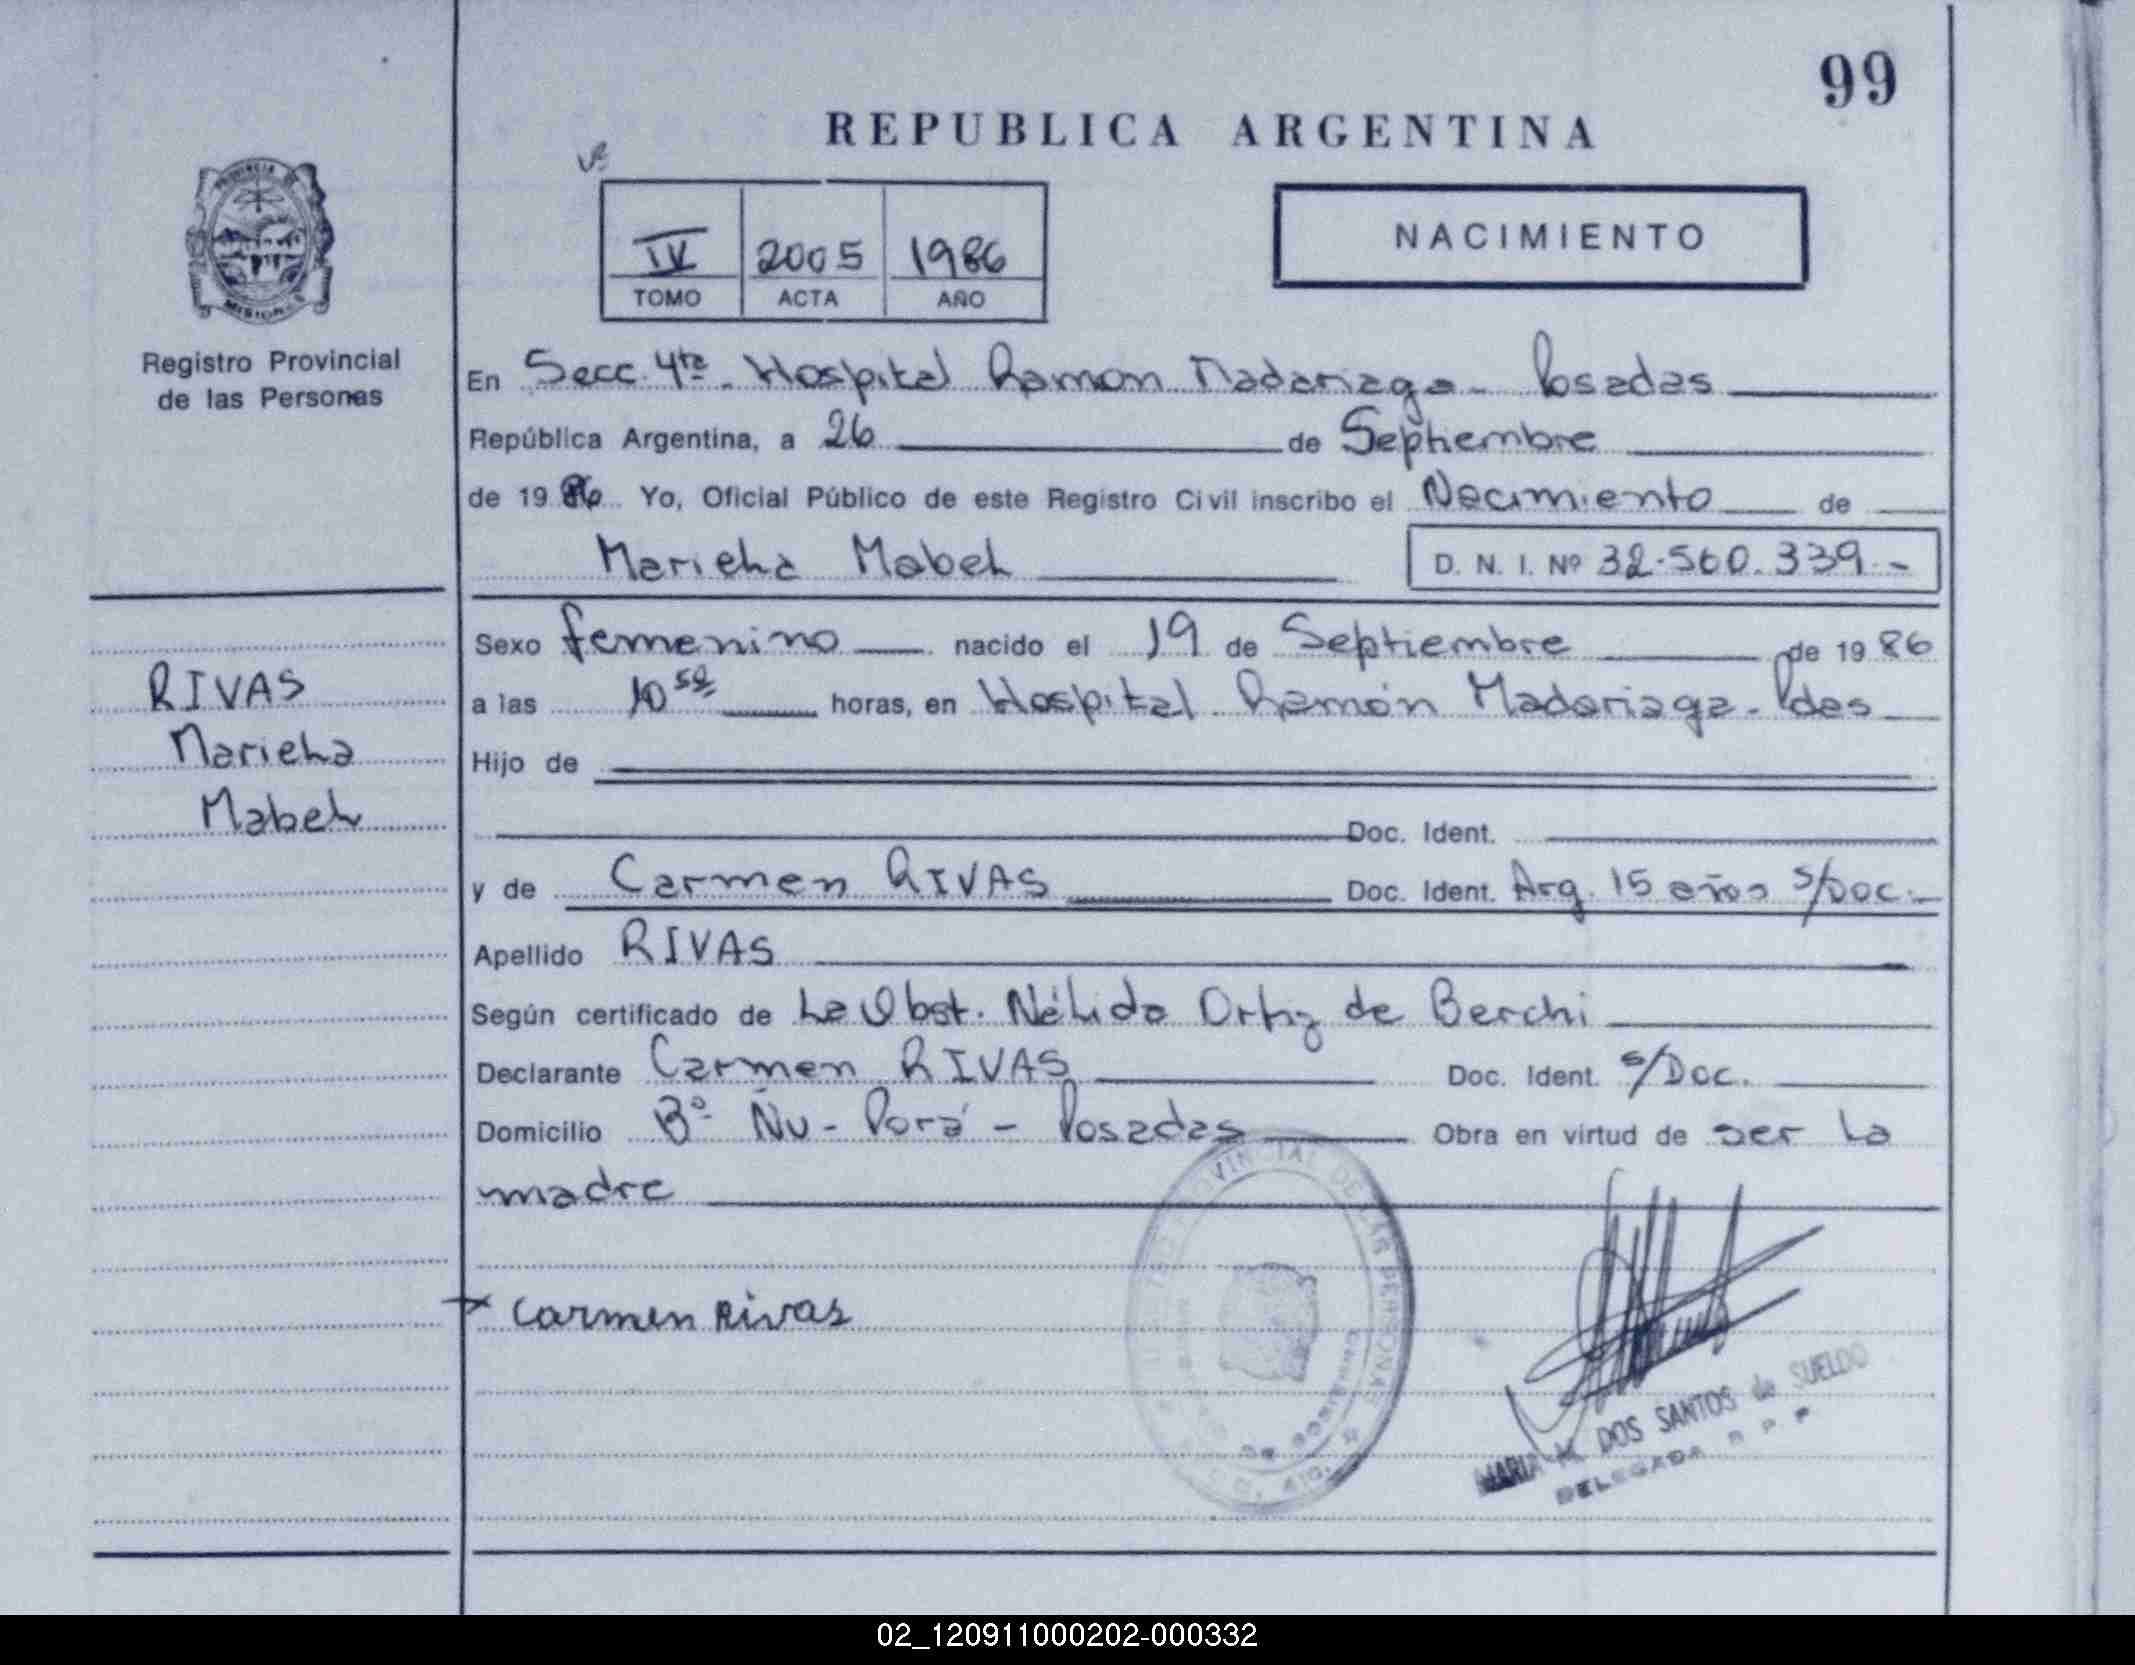 99
REPUBLICA ARGENTINA
PROVINCIA DE
MISIONES
IV 2005 1986
TOMO ACTA AÑO
NACIMIENTO
Registro Provincial
de las Personas
En Secc. 4ta. Hospital Ramon Madariaga - Posadas
República Argentina, a 26 de Septiembre
de 1986 Yo, Oficial Público de este Registro Civil inscribo el Nacimiento de
Mariela Mabel D. N. I. Nº 32.560.339.-
Sexo femenino nacido el 19 de Septiembre de 1986
RIVAS
Mariela
Mabel
a las 10 horas, en Hospital Ramón Madariaga - Pdas
Hijo de
Doc. Ident.
y de Carmen RIVAS Doc. Ident. Arg. 15 años s/Doc.-
Apellido RIVAS
Según certificado de La Obst. Nélida Ortiz de Berchi
Declarante Carmen RIVAS Doc. Ident. s/Doc.
Domicilio Bº Ñu - Porá - Posadas Obra en virtud de ser la
madre
PROVINCIAL DE LAS PERSONAS
Carmen Rivas
MARIA M. DOS SANTOS de SUELDO
DELEGADA R P P
02_120911000202-000332